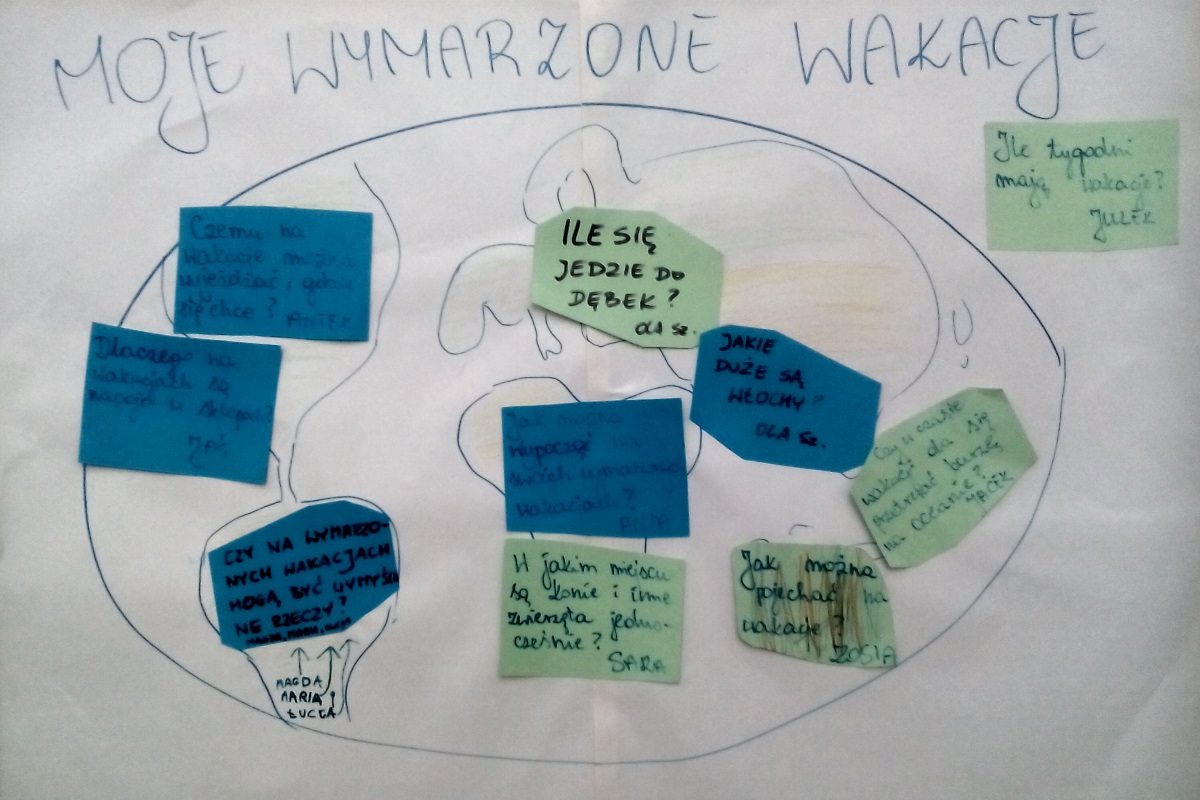 MOJE WYMARZONE WAKACJE
Ile tygodni
mają wakacje?
JULEK
Czemu na
wakacje można
wyjeżdżać, gdzie
się chce?
ANTEK
ILE SIĘ
JEDZIE DO
DĘBEK?
OLA SZ.
Dlaczego na
wakacjach są
napoje w sklepach?
JAŚ
JAKIE
DUŻE SĄ
WŁOCHY?
OLA SZ.
Jak można
wypocząć
swoich wymarzonych
wakacjach?
Czy w czasie
wakacji da się
przetrwać burzę
na oceanie?
JACEK
CZY NA WYMARZO-
NYCH WAKACJACH
MOGĄ BYĆ WYMYŚLO
NE RZECZY?
MAGDA
MARIA i
ŁUCJA
W jakim miejscu
są konie i inne
zwierzęta jedno-
cześnie?
SARA
Jak można
pojechać na
wakacje?
ZOSIA